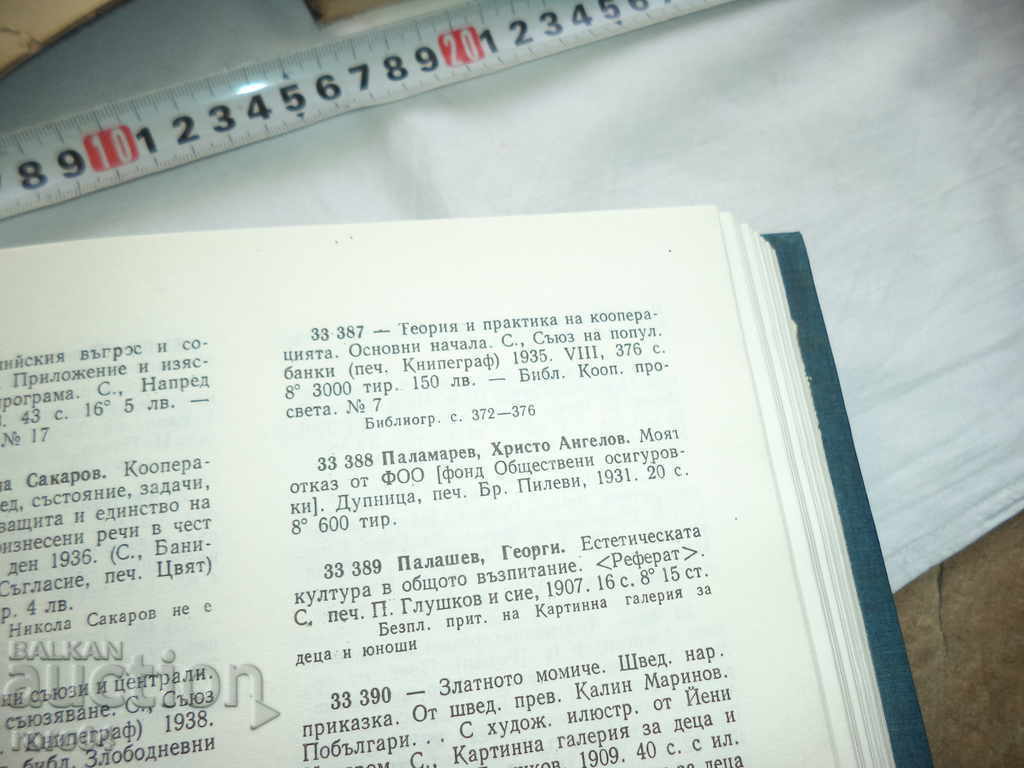 8 9 10 1 2 3 4 5 6 7 8 9 20 1 2 3 4 5 6
ийския въгрэс и со-
Приложение и изяс-
рограма. С., Напред
43 с. 16° 5 лв. —
№ 17
на Сакаров. Коопера-
ед, състояние, задачи,
ащита и единство на
изнесени речи в чест
ден 1936. (С., Бани-
Съгласие, печ. Цвят)
р. 4 лв.
Никола Сакаров не е
ни съюзи и централи.
съюзяване. С., Съюз
(Книпеграф) 1938.
библ. Злободневни
33 387 — Теория и практика на коопера-
цията. Основни начала. С., Съюз на попул.
банки (печ. Книпеграф) 1935. VIII, 376 с.
8° 3000 тир. 150 лв. — Библ. Кооп. про-
света. № 7
Библиогр. с. 372—376
33 388 Паламарев, Христо Ангелов. Моят
отказ от ФОО [фонд Обществени осигуров-
ки]. Дупница, печ. Бр. Пилеви, 1931. 20 с.
8° 600 тир.
33 389 Палашев, Георги. Естетическата
култура в общото възпитание. <Реферат>.
С., печ. П. Глушков и сие, 1907. 16 с. 8° 15 ст.
Безпл. прит. на Картинна галерия за
деца и юноши
33 390 — Златното момиче. Швед. нар.
приказка. От швед. прев. Калин Маринов.
Побългари... С худож. илюстр. от Йени
С., Картинна галерия за деца и
1909. 40 с. с ил.
за деца
BALKAN
auction